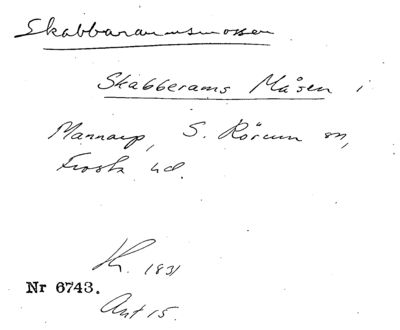 Skabbaramsmossen
Skabberams Måsen i
Mannarp, S. Rörum sn,
Frosta hd.
Kr. 1831
Nr 6743.
Akt 15.